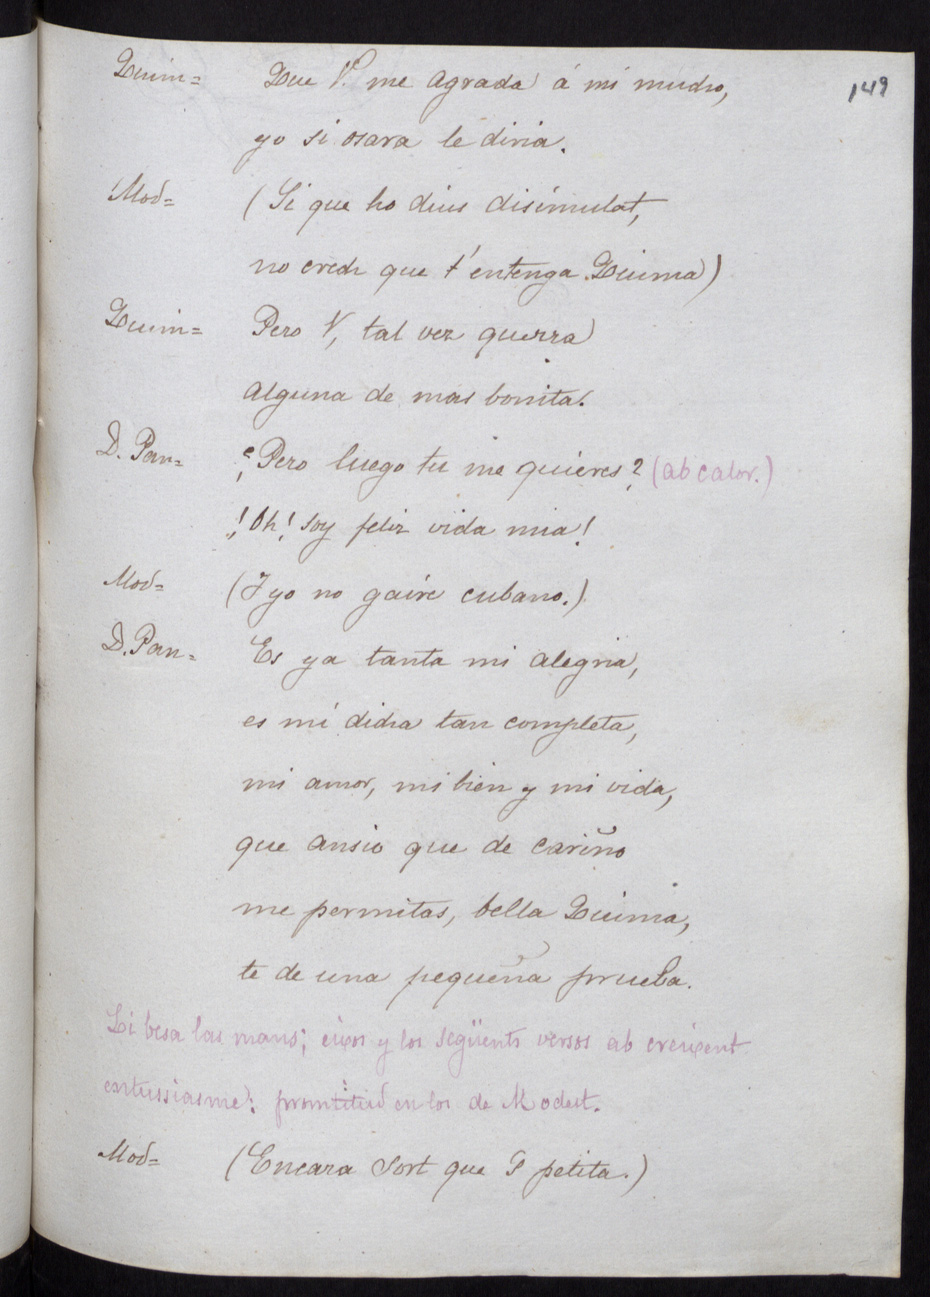 149
Quim= Que V. me agrada á mi mucho,
yo si osara le diria.
Mod= (Si que ho dius disimulat,
no crech que t' entenga Quima)
Quim= Pero V, tal vez querra
alguna de mas bonita.
D. Pan= ¿Pero luego tu me quieres? (ab calor.)
¡Oh! soy feliz vida mia!
Mod= (Y yo no gaire cubano.)
D. Pan= Es ya tanta mi alegria,
es mi dicha tan completa,
mi amor, mi bien y mi vida,
que ansio que de cariño
me permitas, bella Quima,
te de una pequeña prueba.
Li besa las mans; eixos y los següents versos ab creixent
entussiasme: promtitud en los de Modest.
Mod= (Encara sort que es petita.)